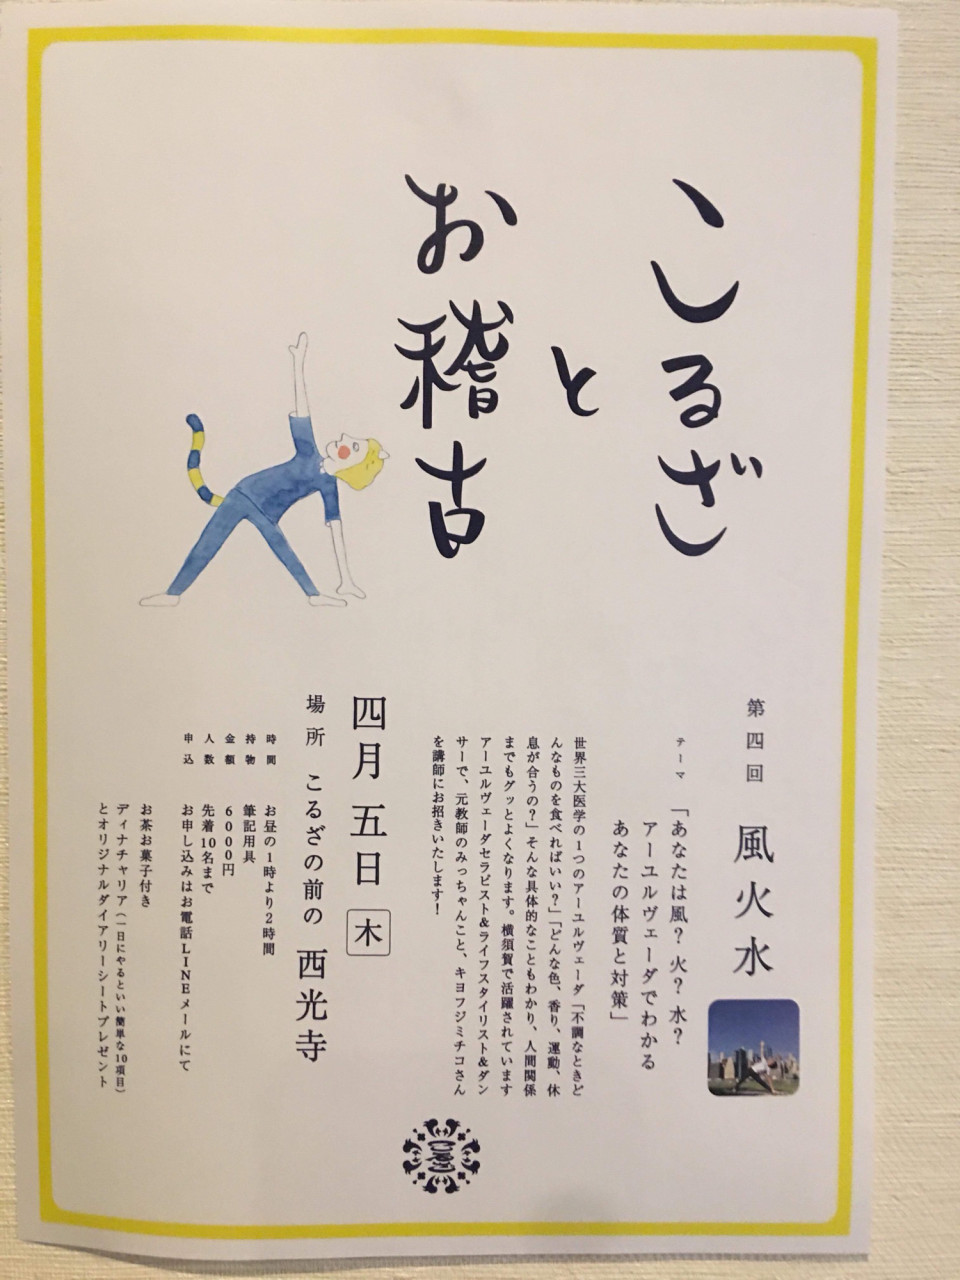 こるざ
と
お稽古
第四回 風火水
テーマ 「あなたは風？火？水？
アーユルヴェーダでわかる
あなたの体質と対策」
世界三大医学の1つのアーユルヴェーダ「不調なときど
んなものを食べればいい？」「どんな色、香り、運動、休
息が合うの？」そんな具体的なこともわかり、人間関係
までもグッとよくなります。横須賀で活躍されています
アーユルヴェーダセラピスト&ライフスタイリスト&ダン
サーで、元教師のみっちゃんこと、キヨフジミチコさん
を講師にお招きいたします！
四月五日 木
場所 こるざの前の 西光寺
時間 お昼の1時より2時間
持物 筆記用具
金額 6000円
人数 先着10名まで
申込 お申し込みはお電話LINEメールにて
お茶お菓子付き
ディナチャリア（一日にやるといい簡単な10項目）
とオリジナルダイアリーシートプレゼント
こるざ